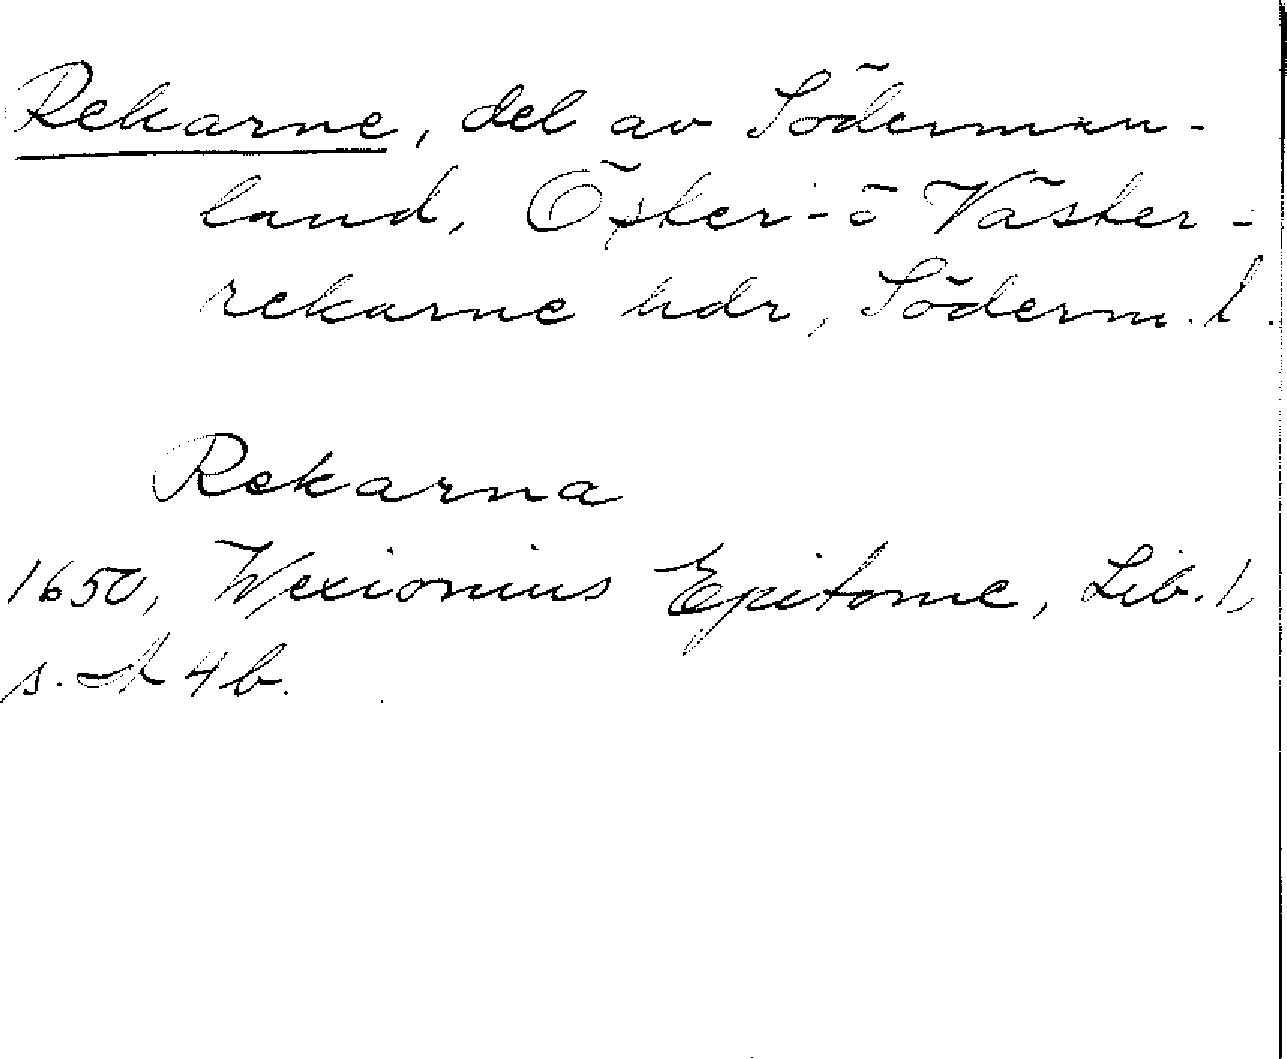 Rekarne, del av Söderman-
land, Öster- o Väster-
rekarne hdr, Söderm. l.
Rekarna
1650, Wexionius Epitome, Lib. 1,
s. 4 b.